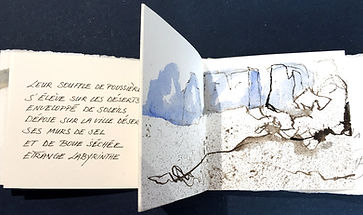 LEUR SOUFFLE DE POUSSIÈRE
S'ÉLÈVE SUR LES DÉSERTS
ENVELOPPÉ DE SOLEILS
DÉPOSE SUR LA VILLE DÉSER
SES MURS DE SEL
ET DE BOUE SÉCHÉE
ÉTRANGE LABYRINTHE